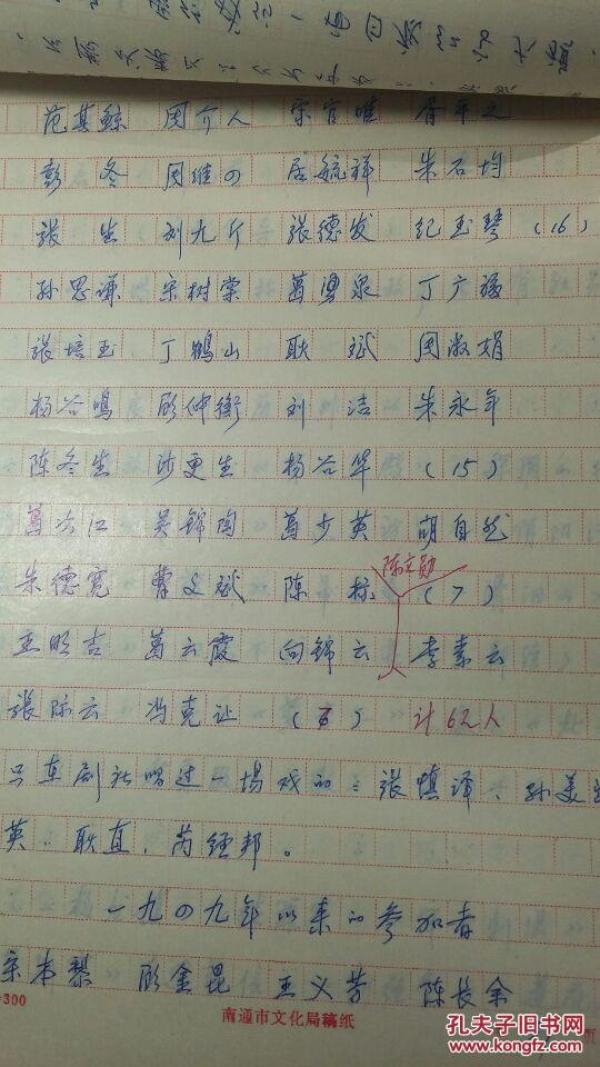 范其鲸 周介人 宋官唯
彭冬 周维四 居毓祥 朱石均
张生 刘九斤 张德发 纪玉琴 (16)
孙思谦 宋树棠 葛勇泉 丁广
张培玉 丁鹤山 耿斌 周淑娟
杨谷鸣 顾仲衡 刘洁 朱永年
陈冬生 沙更生 杨谷华 (15)
葛次江 吴锦陶 葛少英 胡自然
陈文勋
朱德宽 曹文斌 陈标 (7)
王明吉 葛云霞 向锦云 李素云
张际云 冯克让 (6) 计62人
只在剧社唱过一场戏的：张慎泽、孙美
英、耿直、芮经邦。
一九四九年以来的参加者
宋本黎 顾金昆 王义芳 陈长余
300 南通市文化局稿纸
孔夫子旧书网
www.kongfz.com